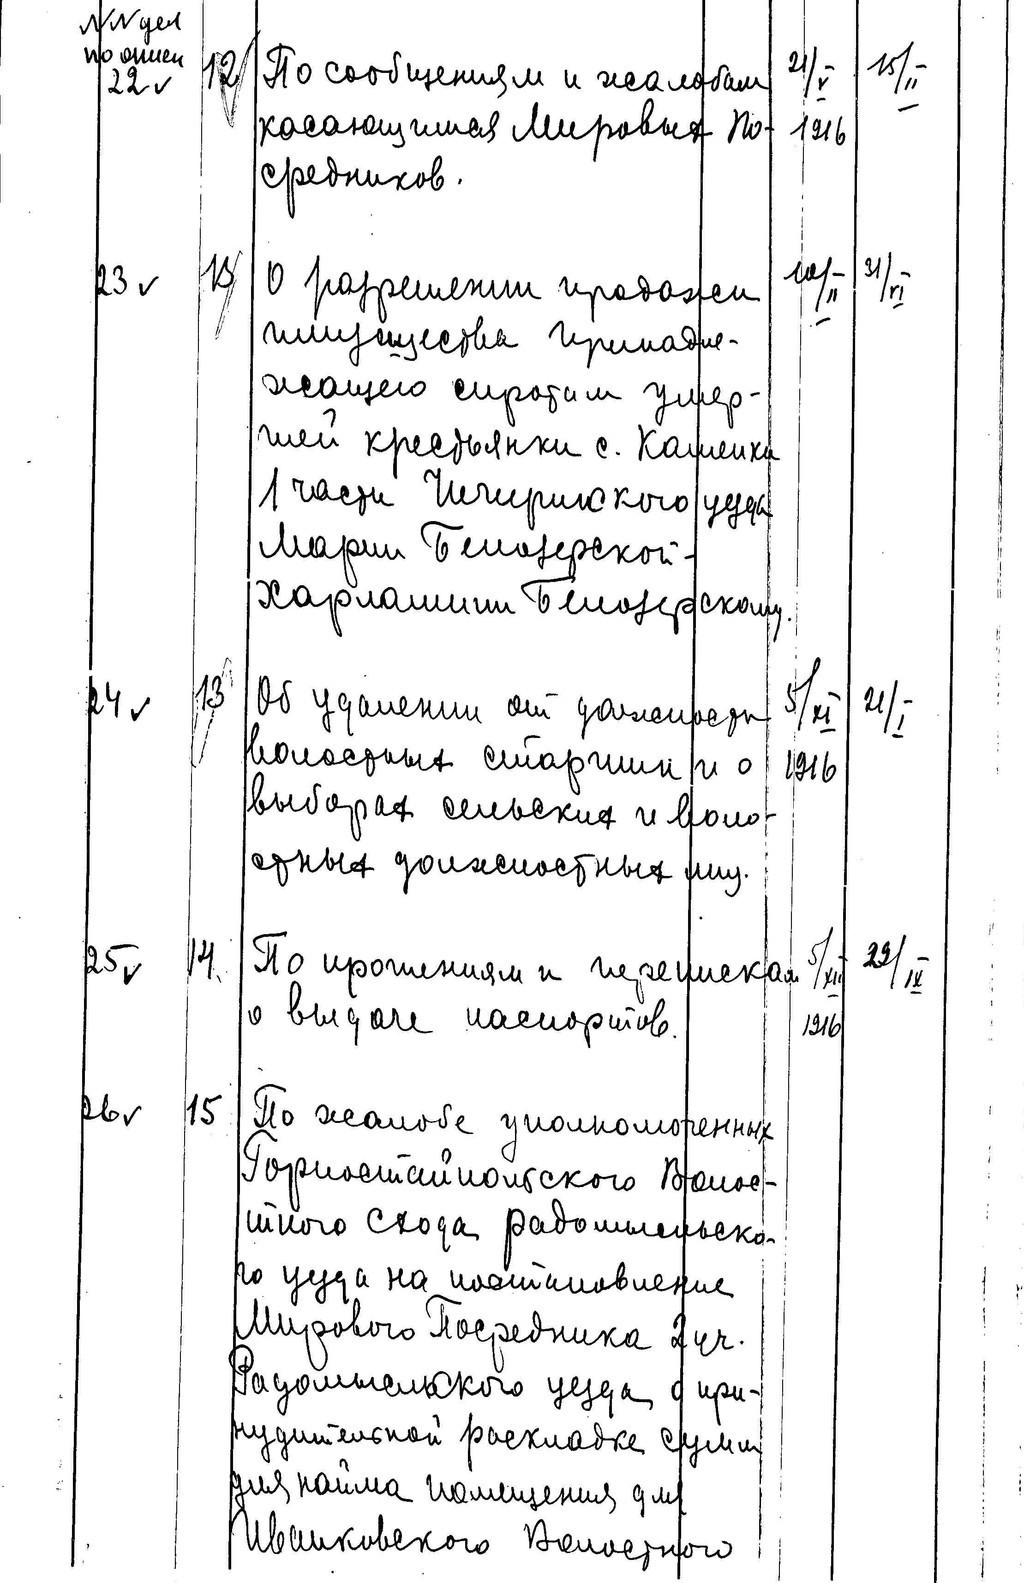 NN дел
по описи
22 v 12 По сообщениям и жалобам 21/V 15/II
касающимся Мировых По- 1916
средников.
23 v 13 О разрешении продажи 10/II 31/VI
имущества принадле-
жащего сиротам умер-
шей крестьянки с. Каменки
1 части Чигиринского уезда
Марии Белозерской-
Харлампии Белозерскому.
24 v 13 Об удалении от должности 5/XI 21/I
волостных старшин и о 1916
выборах сельских и воло-
стных должностных лиц.
25 v 14. По прошениям и перепискам 5/XII 22/IX
о выдаче паспортов. 1916
26 v 15 По жалобе уполномоченных
Горностайпольского Волос-
тного Схода, радомысльско-
го уезда на постановление
Мирового Посредника 2 уч.
Радомысльского уезда, о при-
нудительной раскладке сумм
для найма помещения для
Иванковского Волостного